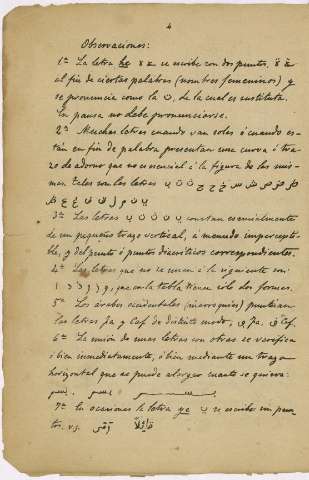 4
Observaciones:
1ª La letra he se escribe con dos puntos, ة
al fin de ciertas palabras (nombres femeninos) y
se pronuncia como la ت, de la cual es sustituta.
En pausa no debe pronunciarse.
2ª Muchas letras cuando van solas ó cuando es-
tán en fin de palabra presentan una curva ó tra-
zo de adorno que no es esencial á la figura de las mis-
mas. Tales son las letras
3ª Las letras constan esencialmente
de un pequeño trazo vertical, á menudo impercepti-
ble, y del punto ó puntos diacríticos correspondientes.
4ª Las letras que no se unen á la siguiente son:
que con la tabla tienen sólo dos formas.
5ª Los árabes occidentales (marroquíes) puntúan
las letras fa y Caf de distinto modo, ڢ fa. ڧ Caf.
6ª La unión de unas letras con otras se verifica
ó bien inmediatamente, ó bien mediante un trazo
horizontal que se puede alargar cuanto se quiera:
7ª En ocasiones la letra ye ى se escribe sin pun-
tos. v.g.